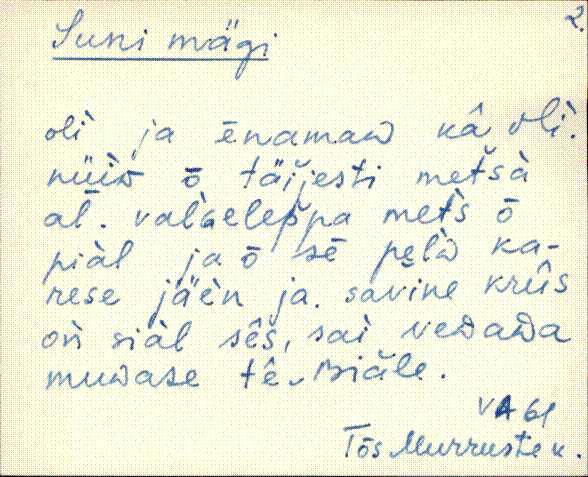 2.
Suni mägi
olì ja ēnamaᴅ kâ olì.
nüìᴅ ō täìjesti metsà
al. valgeleppa mets ō
piàl ja ō sē pelᴅ ka-
rese jäèn ja. savine kriîs
oǹ siàl sês, sai veᴅaᴅa
muᴅase tê piäle.
VA 61
Tõs Murruste k.